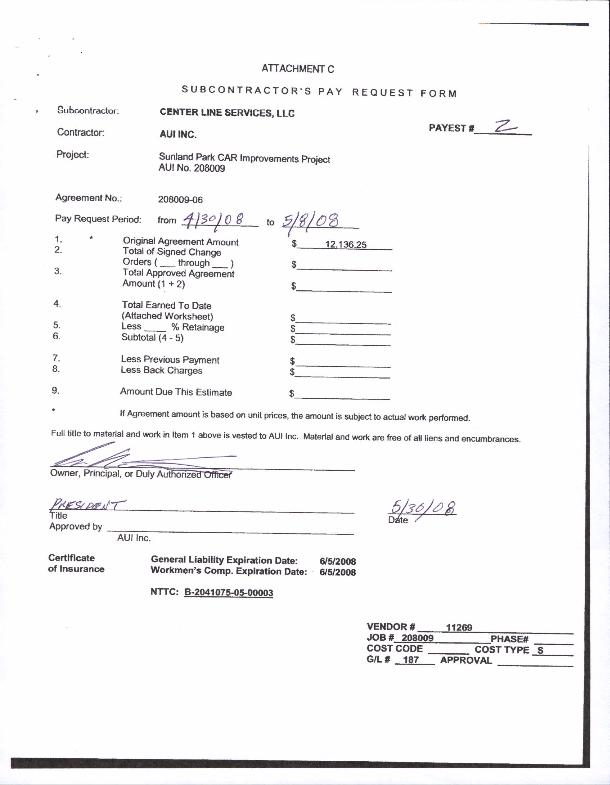 ATTACHMENT C
SUBCONTRACTOR'S PAY REQUEST FORM
Subcontractor: CENTER LINE SERVICES, LLC
Contractor: AUI INC. PAYEST # 2
Project: Sunland Park CAR Improvements Project
AUI No. 208009
Agreement No.: 208009-06
Pay Request Period: from 4/30/08 to 5/8/08
1. * Original Agreement Amount $ 12,136.25
2. Total of Signed Change
Orders ( ___ through ___ ) $
3. Total Approved Agreement
Amount (1 + 2) $
4. Total Earned To Date
(Attached Worksheet) $
5. Less ____ % Retainage $
6. Subtotal (4 - 5) $
7. Less Previous Payment $
8. Less Back Charges $
9. Amount Due This Estimate $
* If Agreement amount is based on unit prices, the amount is subject to actual work performed.
Full title to material and work in Item 1 above is vested to AUI Inc. Material and work are free of all liens and encumbrances.
Owner, Principal, or Duly Authorized Officer
PRESIDENT 5/30/08
Title Date
Approved by
AUI Inc.
Certificate General Liability Expiration Date: 6/5/2008
of Insurance Workmen's Comp. Expiration Date: 6/5/2008
NTTC: B-2041075-05-00003
VENDOR # 11269
JOB # 208009 PHASE#
COST CODE COST TYPE S
G/L # 187 APPROVAL